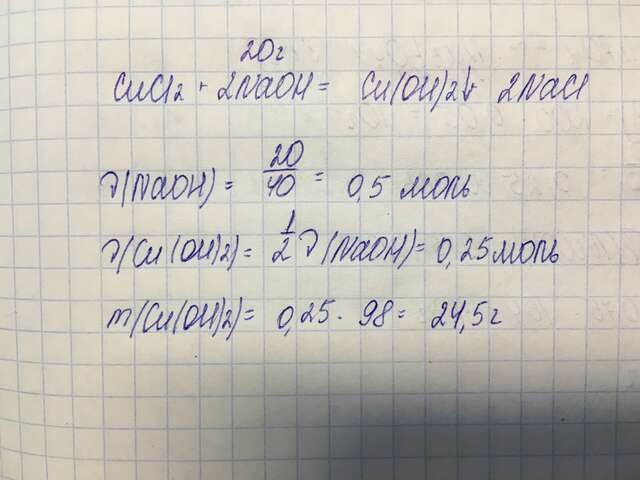 20г
CuCl2 + 2NaOH = Cu(OH)2↓ + 2NaCl
ν(NaOH) = 20/40 = 0,5 моль
ν(Cu(OH)2) = 1/2 ν(NaOH) = 0,25 моль
m(Cu(OH)2) = 0,25 · 98 = 24,5 г